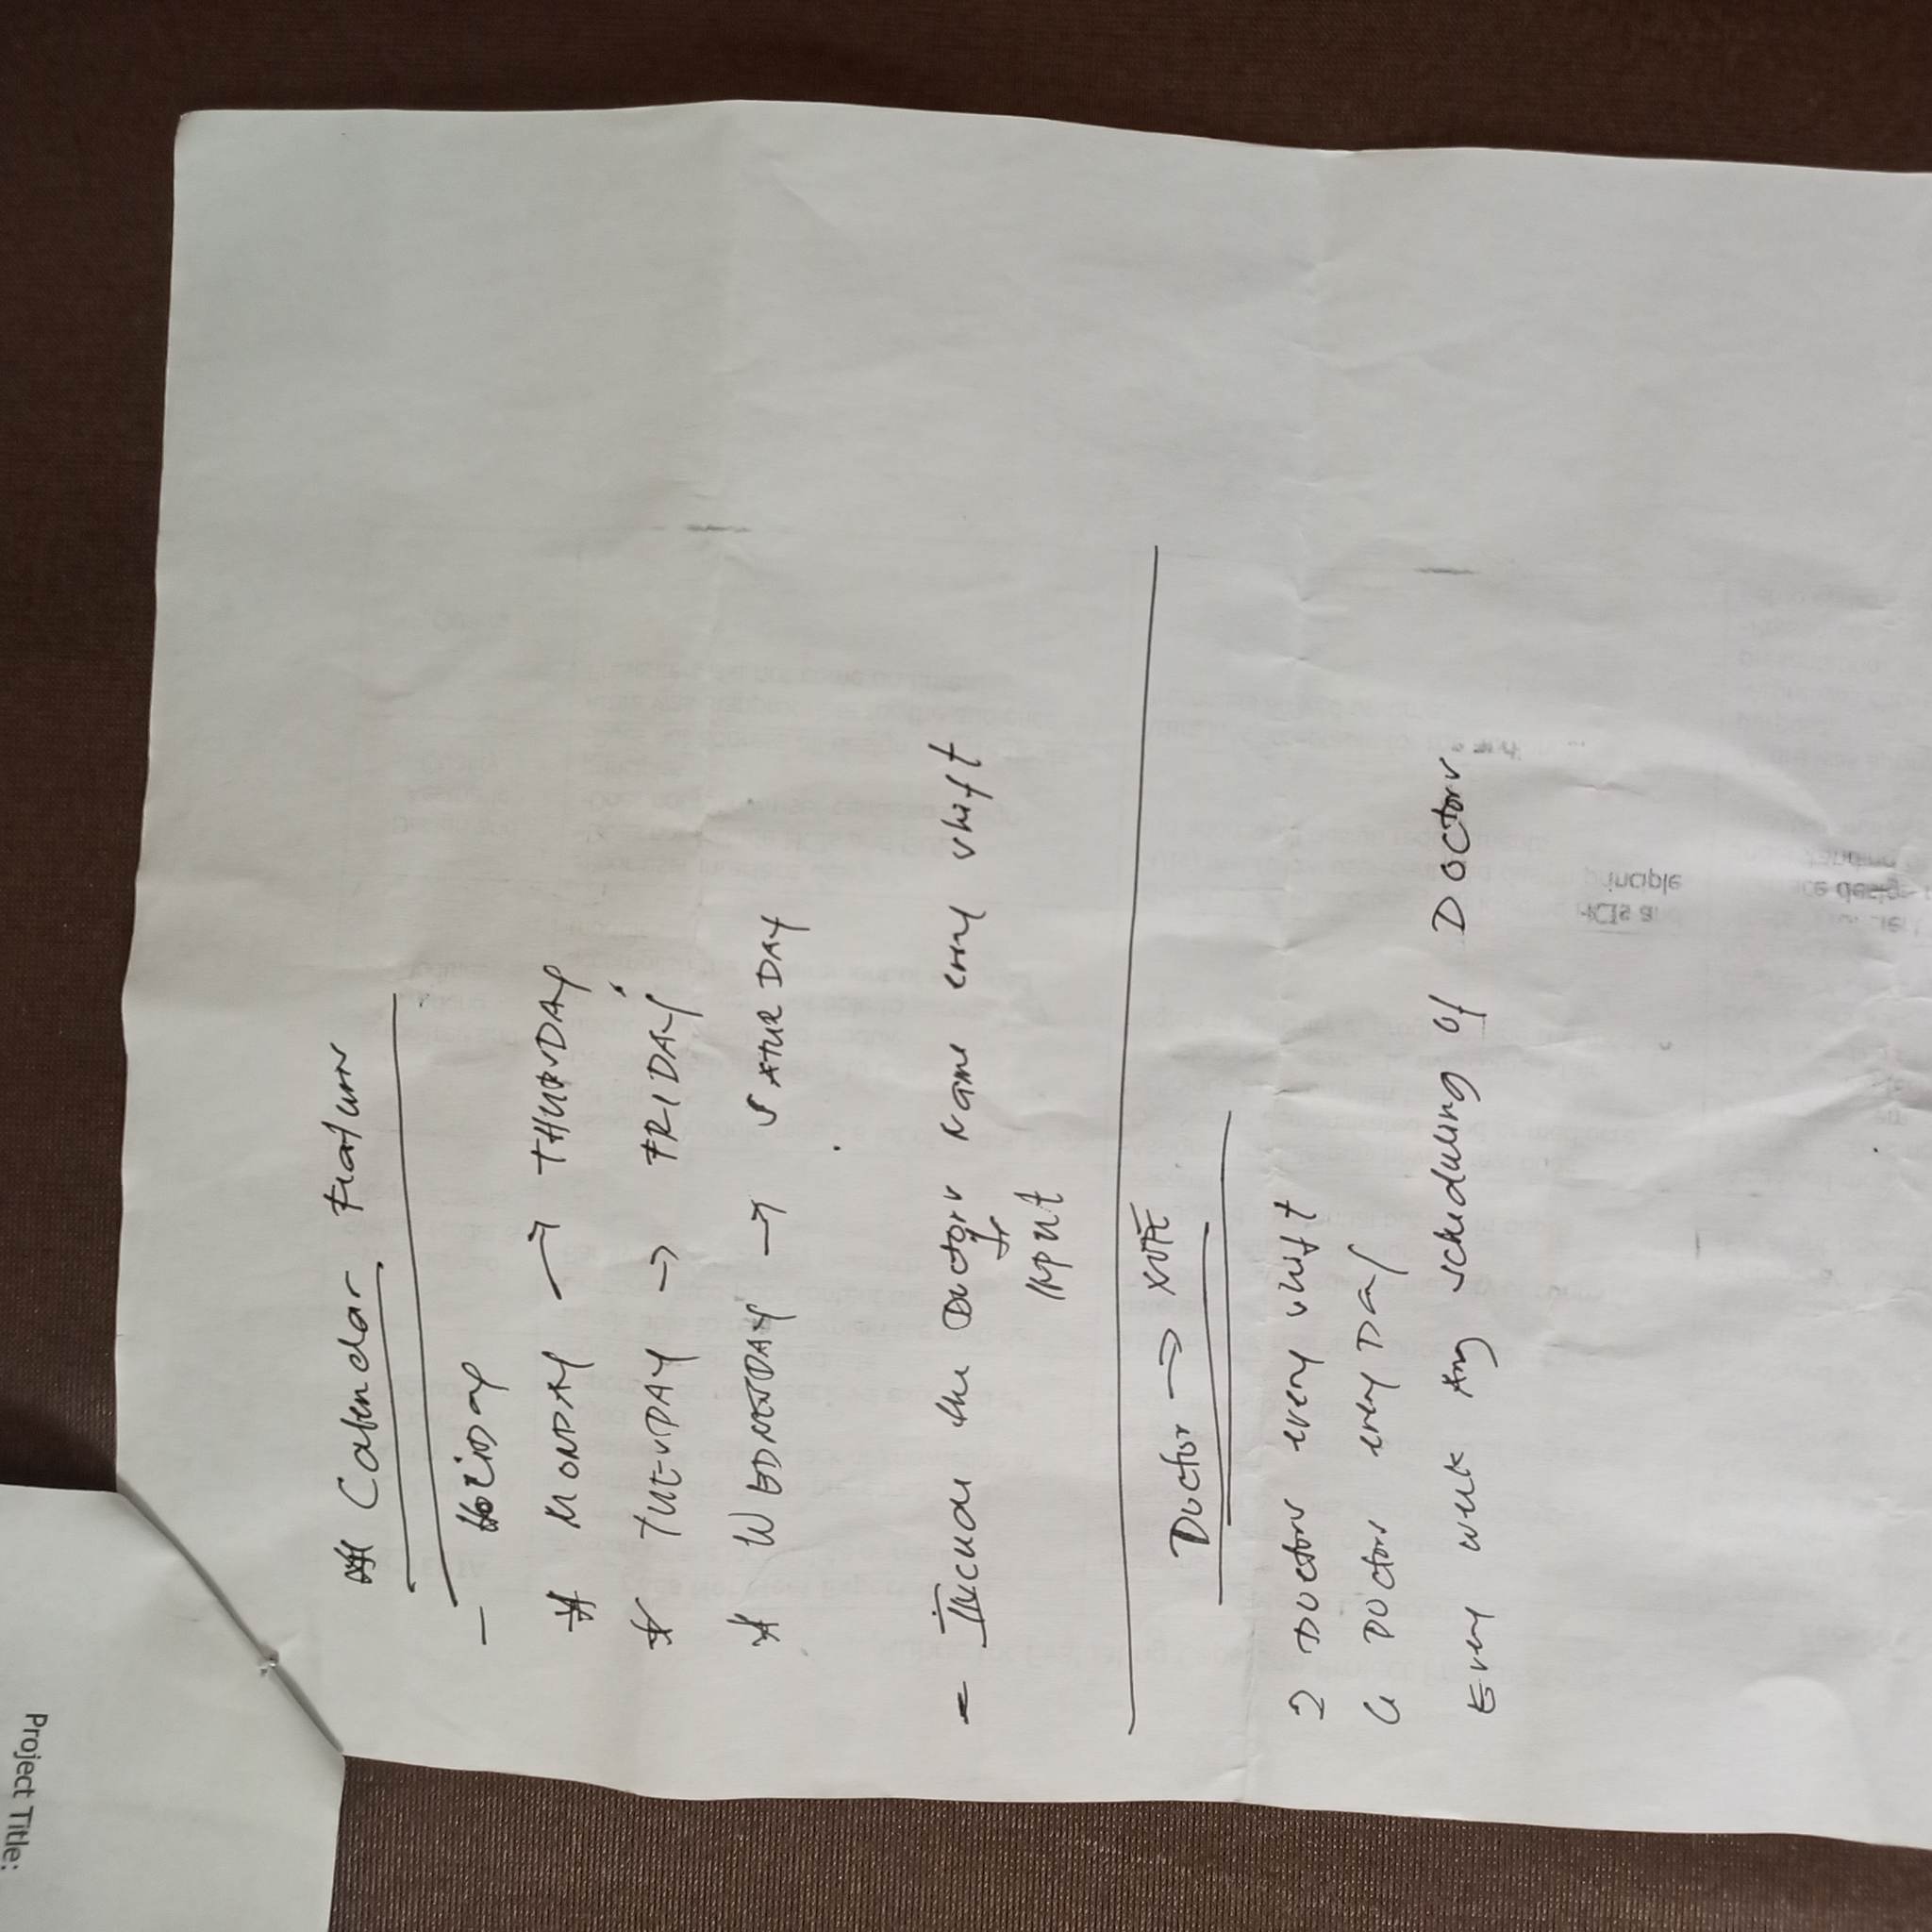 Project Title:
Calendar Features
- Holiday
* MONDAY → THURSDAY
* TUESDAY → FRIDAY
* WEDNESDAY → SATURDAY
- Include the Doctors Name every shift
↓
INPUT
Doctor → NOTE
2 Doctors every shift
6 Doctors every Day
Every week ang scheduling of Doctors